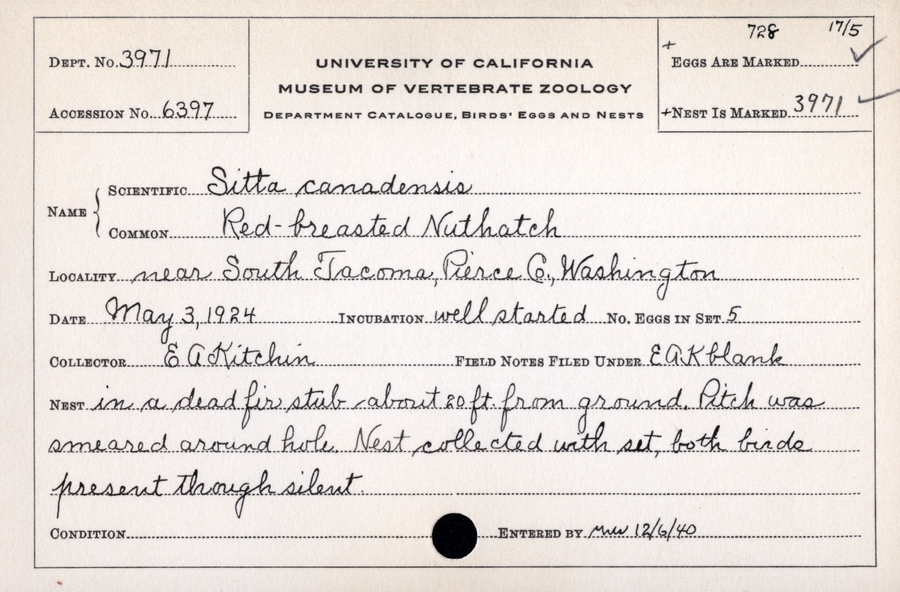 728 17/5
DEPT. No. 3971
UNIVERSITY OF CALIFORNIA
+ EGGS ARE MARKED ✓
MUSEUM OF VERTEBRATE ZOOLOGY
ACCESSION No. 6397
DEPARTMENT CATALOGUE, BIRDS' EGGS AND NESTS
+NEST IS MARKED 3971 ✓
NAME
SCIENTIFIC Sitta canadensis
COMMON Red-breasted Nuthatch
LOCALITY near South Tacoma, Pierce Co., Washington
DATE May 3, 1924 INCUBATION well started No. EGGS IN SET 5
COLLECTOR E A Kitchin FIELD NOTES FILED UNDER EAK blank
NEST in a dead fir stub - about 20 ft. from ground. Pitch was
smeared around hole. Nest collected with set, both birds
present though silent.
CONDITION ENTERED BY 12/6/40